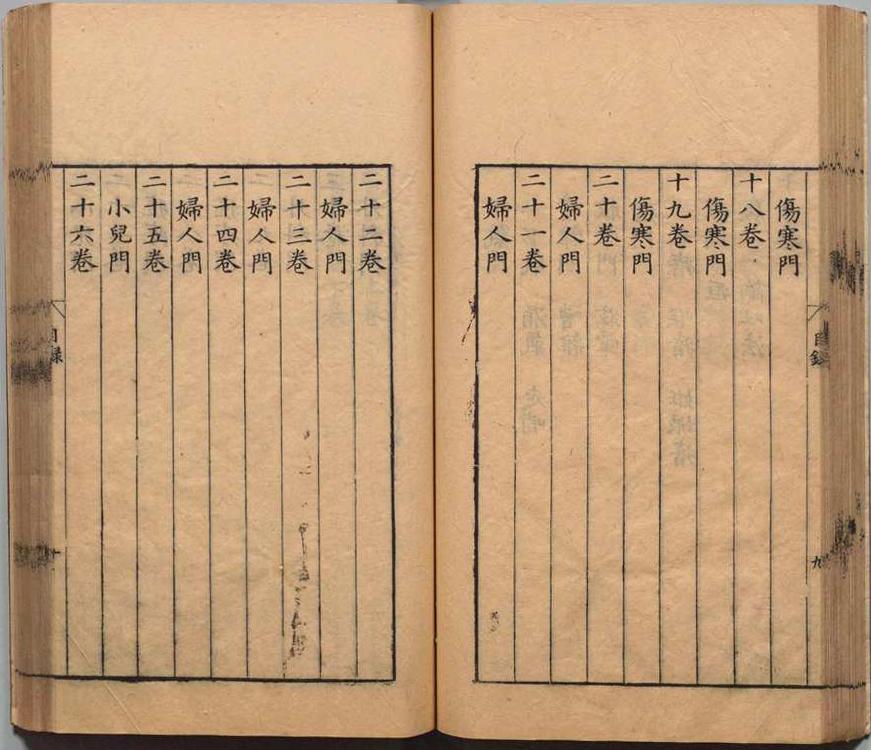 目錄
九
傷寒門
十八卷
傷寒門
十九卷
傷寒門
二十卷
婦人門
二十一卷
婦人門
二十二卷
婦人門
二十三卷
婦人門
二十四卷
婦人門
二十五卷
小兒門
二十六卷
目錄
十